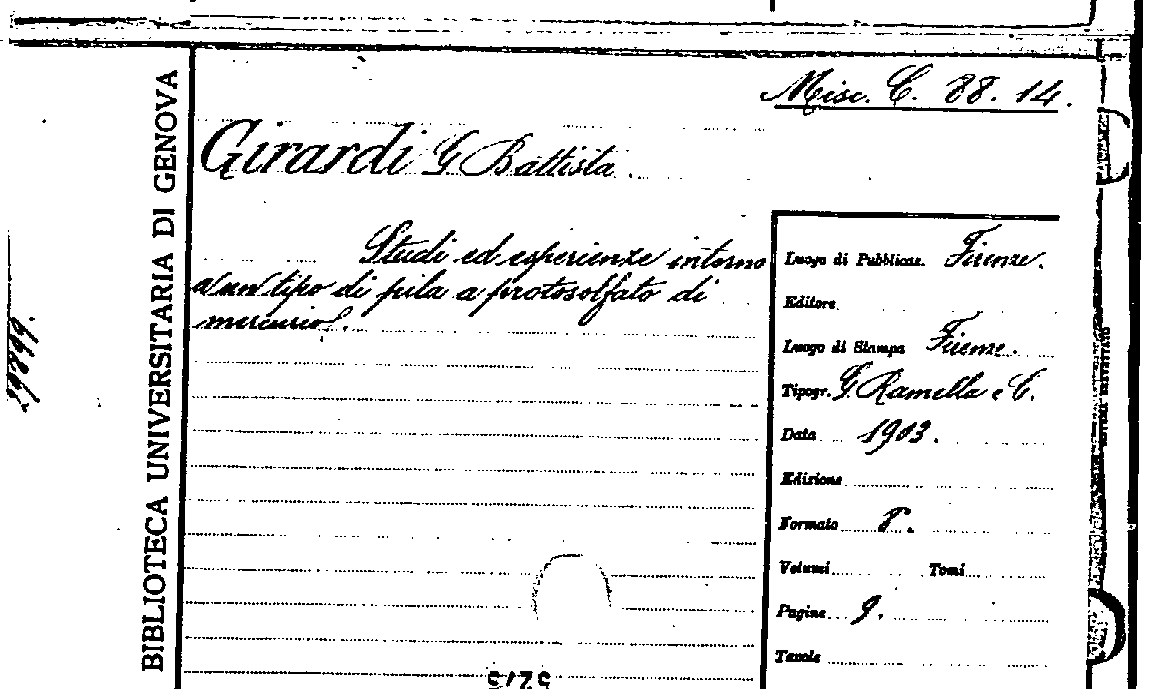 Misc. C. 88. 14.
Girardi G Battista.
Studi ed esperienze intorno
d'un tipo di pila a protosolfato di
mercurio.
Luogo di Pubblicaz. Firenze.
Editore
Luogo di Stampa Firenze.
Tipogr. G. Ramella e C.
Data 1903.
Edizione
Formato 8.
Volumi Tomi
Pagine 9.
Tavole
BIBLIOTECA UNIVERSITARIA DI GENOVA